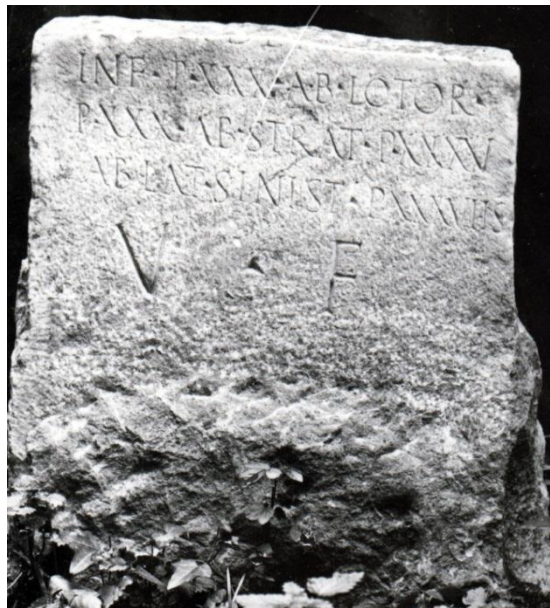 INF·P·XXX·AB·LOTOR·
P·XXX·AB·STRAT·P·XXXV
AB·LAT·SINIST·P·XXXVIIS
V · F